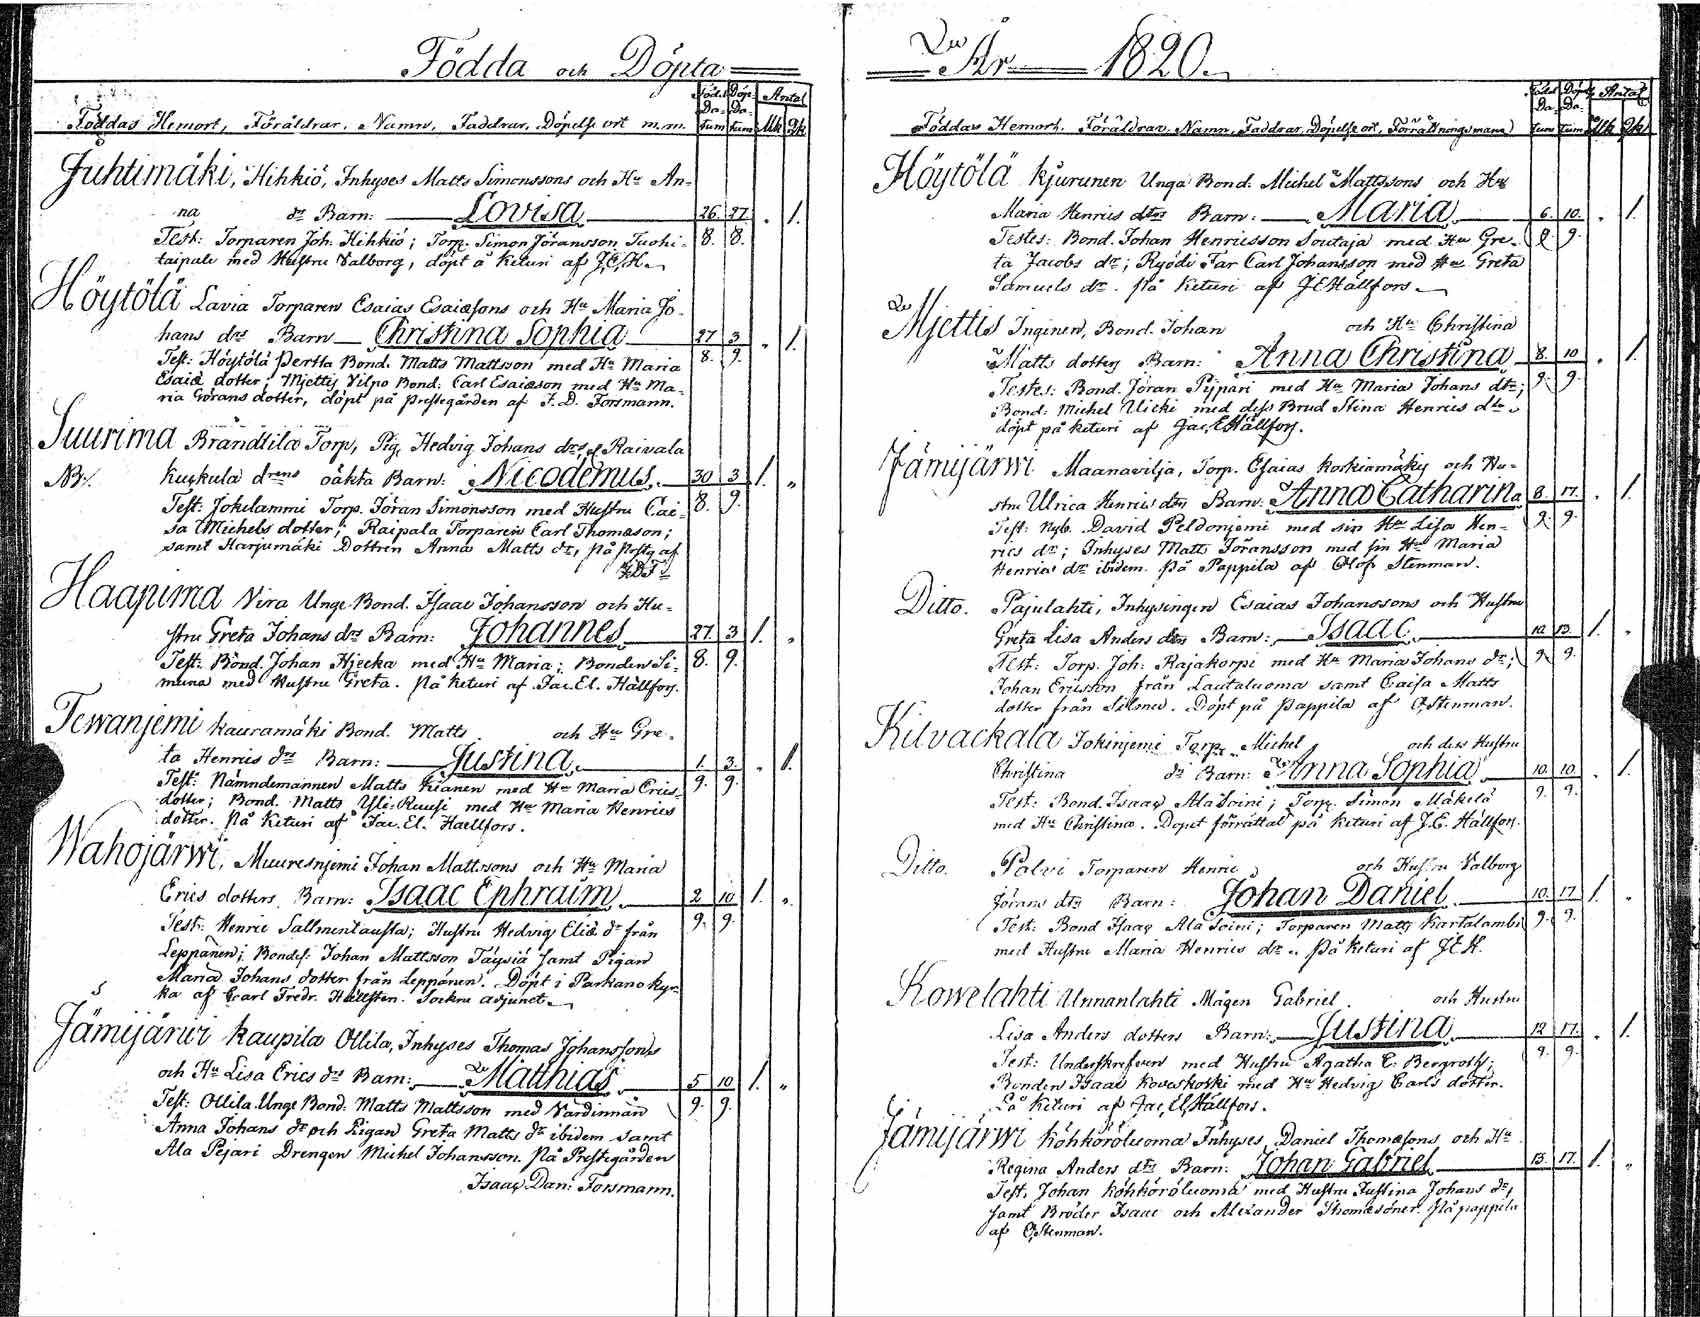 Födda och Döpta
Föddas Hemort, Föräldrar, Namn, Faddrar, Döpelse ort m.m. Föd.s Da-tum Döp. Da-tum Antal Mk Qk
Juhtimäki, Hihkiö, Inhyses Matts Simonssons och Hu An-
na dr Barn: Lovisa 26. 27. . 1.
Test: Torparen Joh. Hihkiö; Torp. Simon Jöransson Tuohi- 8. 8.
taipale med Hustru Valborg, döpt å Keturi af J.E.H.
Höytölä Lavia Torparen Esaias Esaiæsons och Hu Maria Jo-
hans drs Barn Christina Sophia 27 3 . 1.
Test: Höytölä Pertta Bond. Matts Mattsson med Hu Maria 8. 9.
Esaiæ dotter; Mjettis Vilpo Bond: Carl Esaiæson med Hu Ma-
ria Görans dotter, döpt på prestegården af I. D. Forsmann.
Suurima Brändtila Torp, Pig. Hedvig Johans drs, Raivala
NB. Kuckula drens oäkta Barn: Nicodemus. 30 3 1. „
Test: Jokilammi Torp. Jöran Simonsson med Hustru Cai- 8. 9.
sa Michels dotter; Raipala Torparen Carl Thomæson;
samt Harjumäki Dottren Anna Matts dr, på Prestg af
I.D.F.
Haapima Nira Unge Bond. Isaac Johansson och Hu-
stru Greta Johans drs Barn: Johannes 27. 3 1. „
Test: Bond. Johan Hjecka med Hu Maria; Bonden Si- 8. 9.
muna med Hustru Greta. På Keturi af Jac. El. Hällfors.
Tewanjemi Kauramäki Bond. Matts och Hu Gre-
ta Henrics drs Barn: Justina. 1. 3. . 1.
Test: Nämndemannen Matts Kianen med Hu Maria Erics 9. 9.
dotter; Bond. Matts Yli-Ruusi med Hu Maria Henrics
dotter. På Keturi af Jac. El. Haellfors.
Wahojärwi, Muuresnjemi Johan Mattssons och Hu Maria
Erics dotters Barn: Isaac Ephraim. 2 10 1. „
Test: Henric Sallmentausta; Hustru Hedvig Eliæ dr från 9. 9.
Leppänen; Bondes: Johan Mattsson Täysiä samt Pigan
Maria Johans dotter från Leppänen. Döpt i Parkano kyr-
ka af Carl Fredr. Hällsten. Sockne adjunct.
Jämijärwi Kaupila Ollila, Inhyses Thomas Johanssons
och Hu Lisa Erics drs Barn: Matthias 5 10 1. „
Test: Ollila Unge Bond: Matts Mattsson med Värdinnan 9. 9.
Anna Johans dr och Pigan Greta Matts dr ibidem samt
Ala Pejari Drengen Michel Johansson. På Prestegården
Isaac Dan: Forsmann.
År 1820.
Föddas Hemort, Föräldrar, Namn, Faddrar, Döpelse ort, Förrättningsman Född Da-tum Döpt Da-tum Antal Mk Qk
Höytölä Kjurunen Unga Bond. Michel Mattssons och Hus
Maria Henrics dters Barn: Maria 6. 10. . 1.
Testes: Bond. Johan Henricsson Soutaja med Hu Gre- 9 9.
ta Jacobs dr; Ryödi Far Carl Johansson med Hu Greta
Samuels dr. På Keturi af J E Hällfors.
Mjettis Inginen, Bond. Johan och Hu Christina
Matts dotters Barn: Anna Christina 8. 10 . 1.
Testes: Bond. Jöran Pijpari med Hu Maria Johans dtr; 9. 9.
Bond: Michel Uicki med dess Brud Stina Henrics dtr.
döpt på Keturi af Jac. E Hällfors.
Jämijärwi Maanavilja, Torp. Esaias Koskiamäky och Hu-
stru Ulrica Henrics dters Barn: Anna Catharina 8. 17. . 1.
Test: Nyb. David Peldonjemi med sin Hu Lisa Hen- 9. 9.
rics dr; Inhyses Matts Jöransson med sin Hu Maria
Henrics dr ibidem. På Pappila af Olof Stenman.
Ditto. Pajulahti, Inhysingen Esaias Johanssons och Hustru
Greta Lisa Anders dters Barn: Isaac. 12 13. 1. „
Test: Torp. Joh: Rajakorpi med Hu Maria Johans dr; 9. 9.
Johan Ericsson från Lautaluoma samt Caisa Matts
dotter från . Döpt på Pappila af O. Stenman.
Kilvackala Jokinjemi Torp. Michel och dess Hustru
Christina dr Barn: Anna Sophia 10. 10. . 1.
Test: Bond. Isaac Ala Soini; Torp. Simon Mäkelä 9. 9.
med Hu Christina. Dopet förrättat på Keturi af J. E. Hällfors.
Ditto. Palvi Torparen Henric och Hustru Valborg
Jörans dters Barn: Johan Daniel 10. 17 1. „
Test: Bond Isaac Ala Soini; Torparen Matts Kartalambi 9. 9.
med Hustru Maria Henrics dr. På Keturi af J.E.H.
Kowelahti Unnanlahti Mågen Gabriel och Hustru
Lisa Anders dotters Barn: Justina 12 17. . 1.
Test: Underskrefven med Hustru Agatha C. Bergroth; 9. 9.
Bonden Isaac Koveskoski med Hu Hedvig Carls dotter.
På Keturi af Jac. El Hällfors.
Jämijärwi Köhköröluoma Inhyses Daniel Thomæsons och Hu
Regina Anders dters Barn: Johan Gabriel 13. 17. 1. „
Test. Johan Köhköröluoma med Hustru Justina Johans dr,
samt Bröder Isaac och Alexander Thomæsöner. På pappila
af O. Stenman.